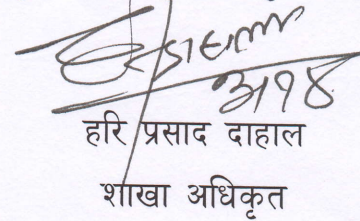 हरि प्रसाद दाहाल
शाखा अधिकृत